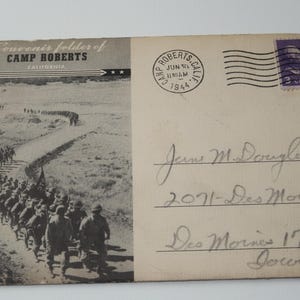 Souvenir folder of
CAMP ROBERTS
CALIFORNIA
CAMP ROBERTS, CALIF.
JUN
11 AM
1944
June M. Dougl
2071- Des Mo
Des Moines 17
Iowa